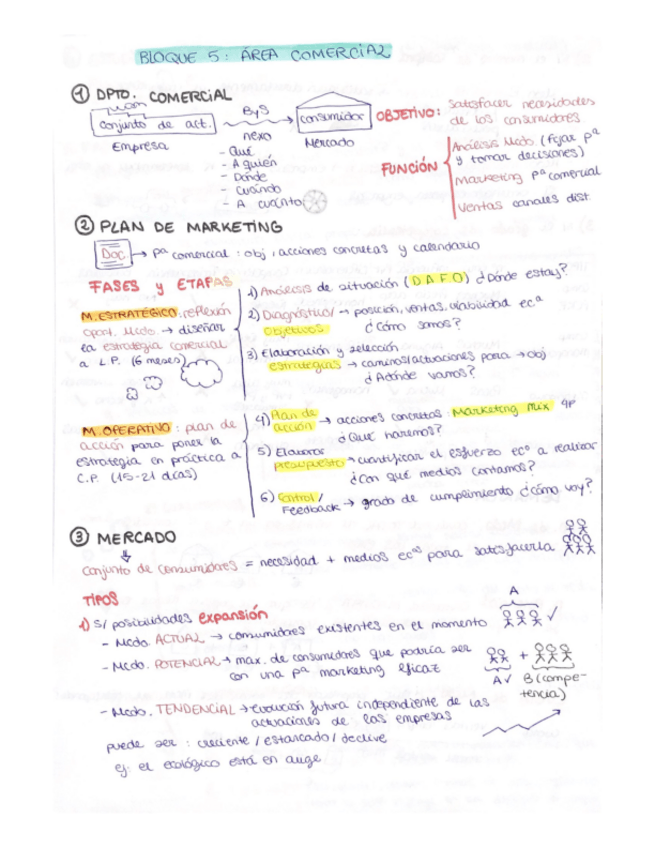 BLOQUE 5: ÁREA COMERCIAL
① DPTO. COMERCIAL
unión
conjunto de act.
Empresa
ByS
nexo
- Qué
- A quién
- Dónde
- cuándo
- A cuánto
consumidor
Mercado
OBJETIVO: satisfacer necesidades
de los consumidores
FUNCIÓN
Análisis Mcdo (fijar pª
y tomar decisiones)
Marketing pª comercial
Ventas canales dist.
② PLAN DE MARKETING
Doc → pª comercial: obj, acciones concretas y calendario
FASES y ETAPAS
M. ESTRATÉGICO: reflexión
oport. Mcdo. → diseñar
la estrategia comercial
a L.P. (6 meses)
1) Análisis de situación (DAFO) ¿Dónde estoy?
2) Diagnóstico/ → posición, ventas, viabilidad ecª
Objetivos ¿Cómo somos?
3) Elaboración y selección
estrategias → caminos/actuaciones para → obj
¿Adónde vamos?
M. OPERATIVO: plan de
acción para poner la
estrategia en práctica a
C.P. (15-21 días)
4) Plan de
acción → acciones concretas: Marketing Mix 4P
¿Qué haremos?
5) Elaborar
presupuesto → cuantificar el esfuerzo ecº a realizar
¿Con qué medios contamos?
6) Control/
Feedback → grado de cumplimiento ¿cómo voy?
③ MERCADO
conjunto de consumidores = necesidad + medios ecºs para satisfacerla
TIPOS
1) S/ posibilidades expansión
- Mcdo. ACTUAL → consumidores existentes en el momento
A
✓
- Mcdo. POTENCIAL → max. de consumidores que podría ser
con una pª marketing eficaz
+
A✓ B (compe-
tencia)
- Mcdo. TENDENCIAL → Evolución futura independiente de las
actuaciones de las empresas
puede ser: creciente / estancado / declive
ej: el ecológico está en auge